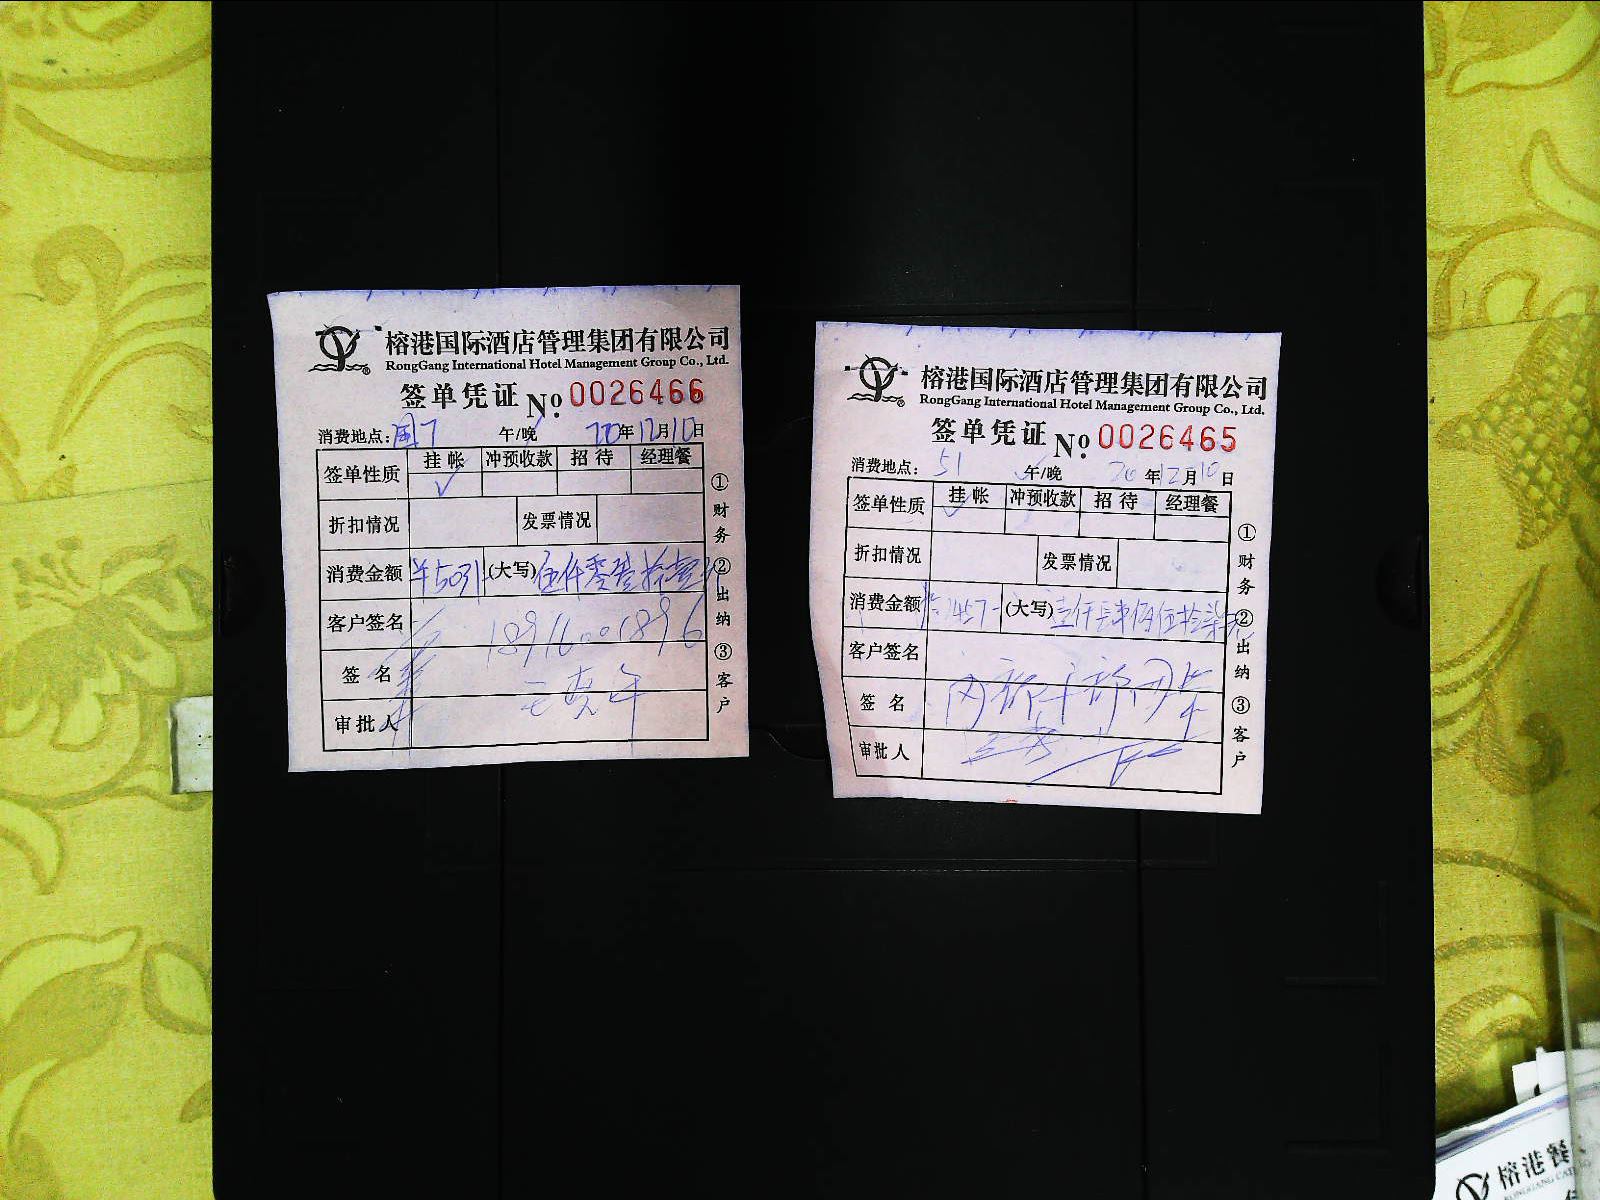 榕港国际酒店管理集团有限公司
RongGang International Hotel Management Group Co., Ltd.
签单凭证 No. 0026466
消费地点: 午/晚 20年12月10日
签单性质 挂帐 冲预收款 招待 经理餐
✓
折扣情况 发票情况
消费金额 ¥5031 (大写) 伍仟零叁拾壹
客户签名 18916001896
签名
审批人
①财务 ②出纳 ③客户
榕港国际酒店管理集团有限公司
RongGang International Hotel Management Group Co., Ltd.
签单凭证 No. 0026465
消费地点: 51 午/晚 20年12月10日
签单性质 挂帐 冲预收款 招待 经理餐
✓
折扣情况 发票情况
消费金额 1457- (大写)
客户签名
签名
审批人
①财务 ②出纳 ③客户
榕港餐